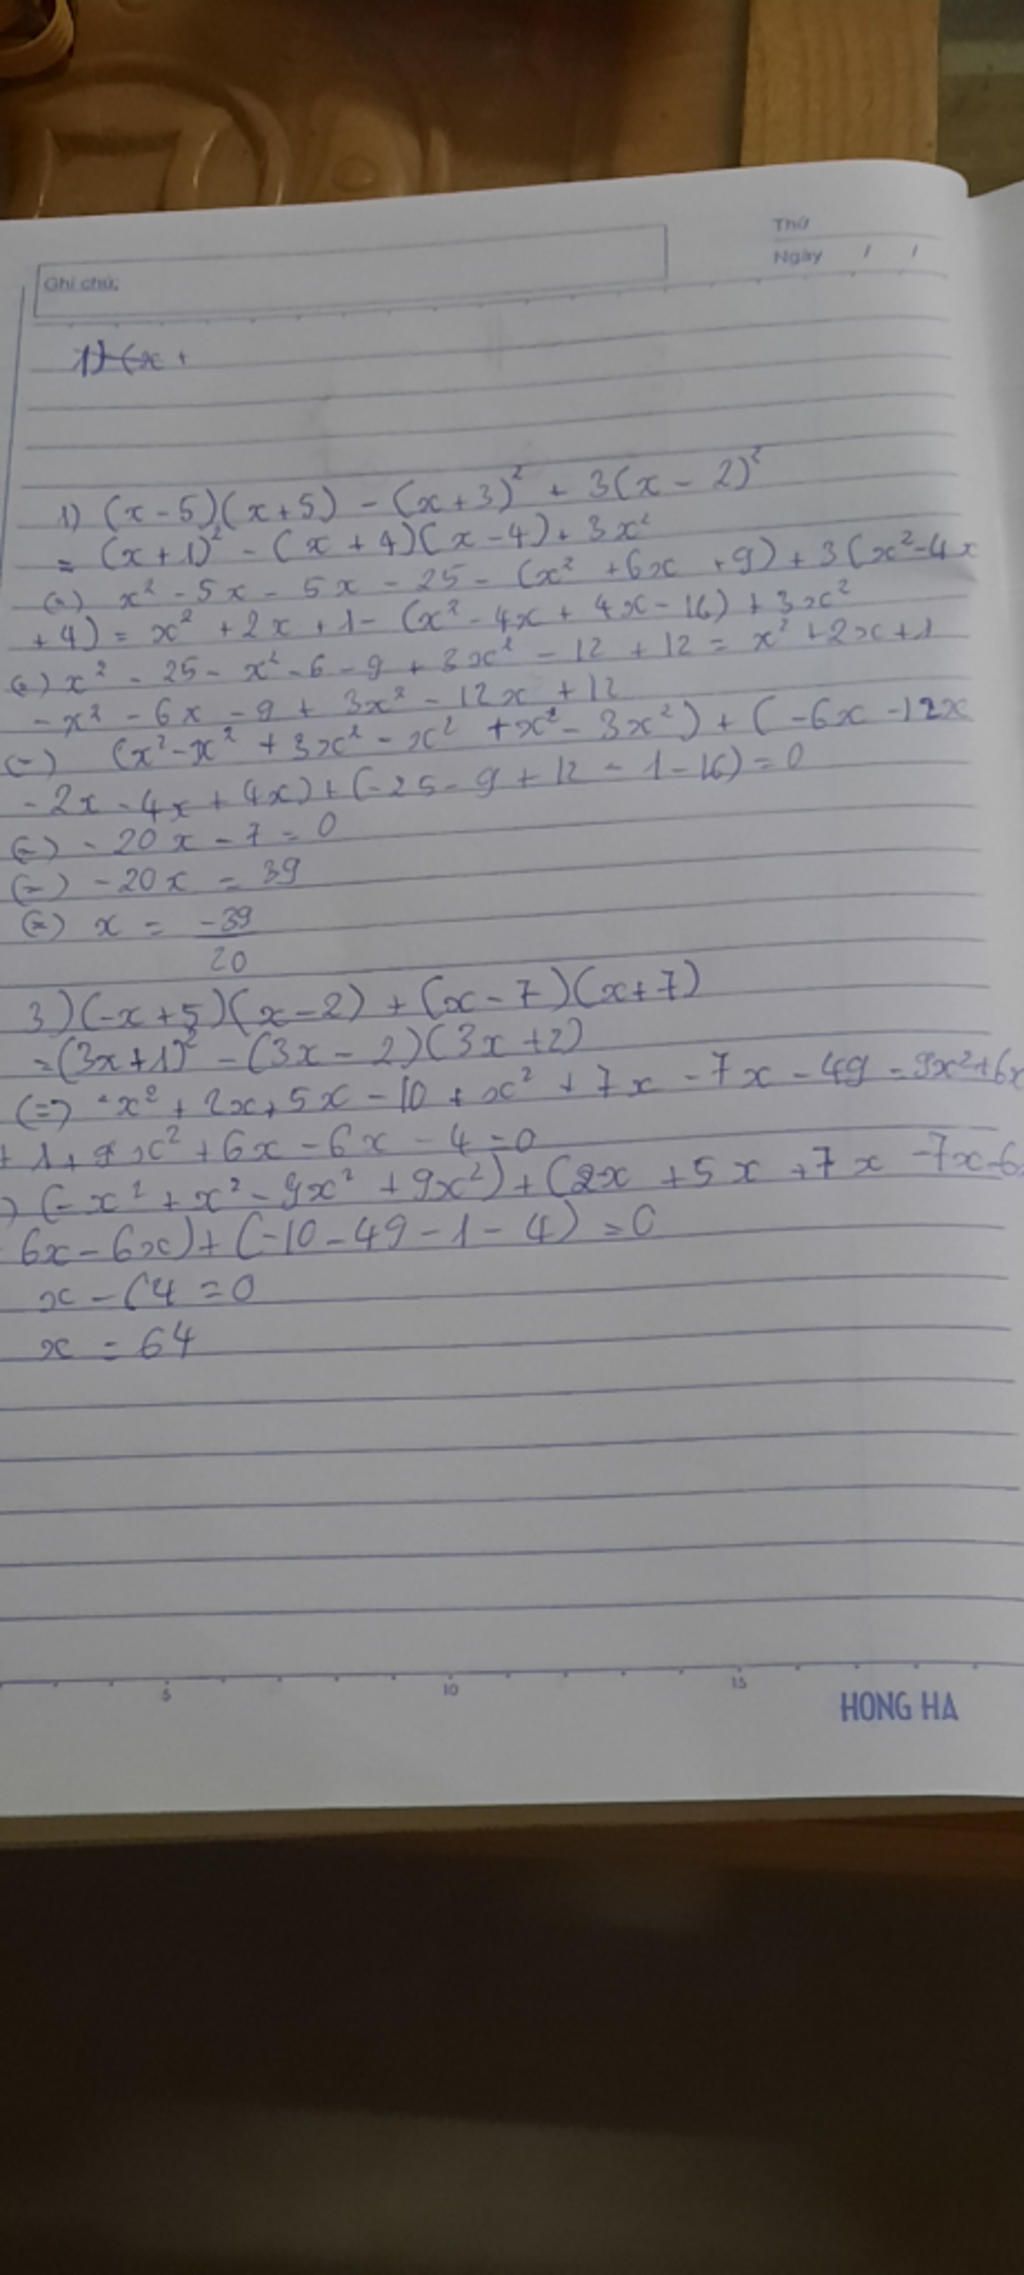 Thứ
Ngày / /
Ghi chú:
1) (x +
1) (x - 5)(x + 5) - (x + 3)² + 3(x - 2)²
= (x + 1)² - (x + 4)(x - 4) + 3x²
(=) x² - 5x - 5x - 25 - (x² + 6x + 9) + 3(x² - 4x
+ 4) = x² + 2x + 1 - (x² - 4x + 4x - 16) + 3x²
(=) x² - 25 - x² - 6 - 9 + 3x² - 12 + 12 = x² + 2x + 1
- x² - 6x - 9 + 3x² - 12x + 12
(=) (x² - x² + 3x² - x² + x² - 3x²) + (-6x - 12x
- 2x - 4x + 4x) + (-25 - 9 + 12 - 1 - 16) = 0
(=) - 20x - 7 = 0
(=) - 20x = 39
(=) x = -39
20
3) (-x + 5)(x - 2) + (x - 7)(x + 7)
= (3x + 1)² - (3x - 2)(3x + 2)
(=) -x² + 2x + 5x - 10 + x² + 7x - 7x - 49 - 9x² + 6x
+ 1 + 9x² + 6x - 6x - 4 = 0
) (-x² + x² - 9x² + 9x²) + (2x + 5x + 7x - 7x - 6
6x - 6x) + (-10 - 49 - 1 - 4) = 0
x - 64 = 0
x = 64
5 10 15
HONG HA